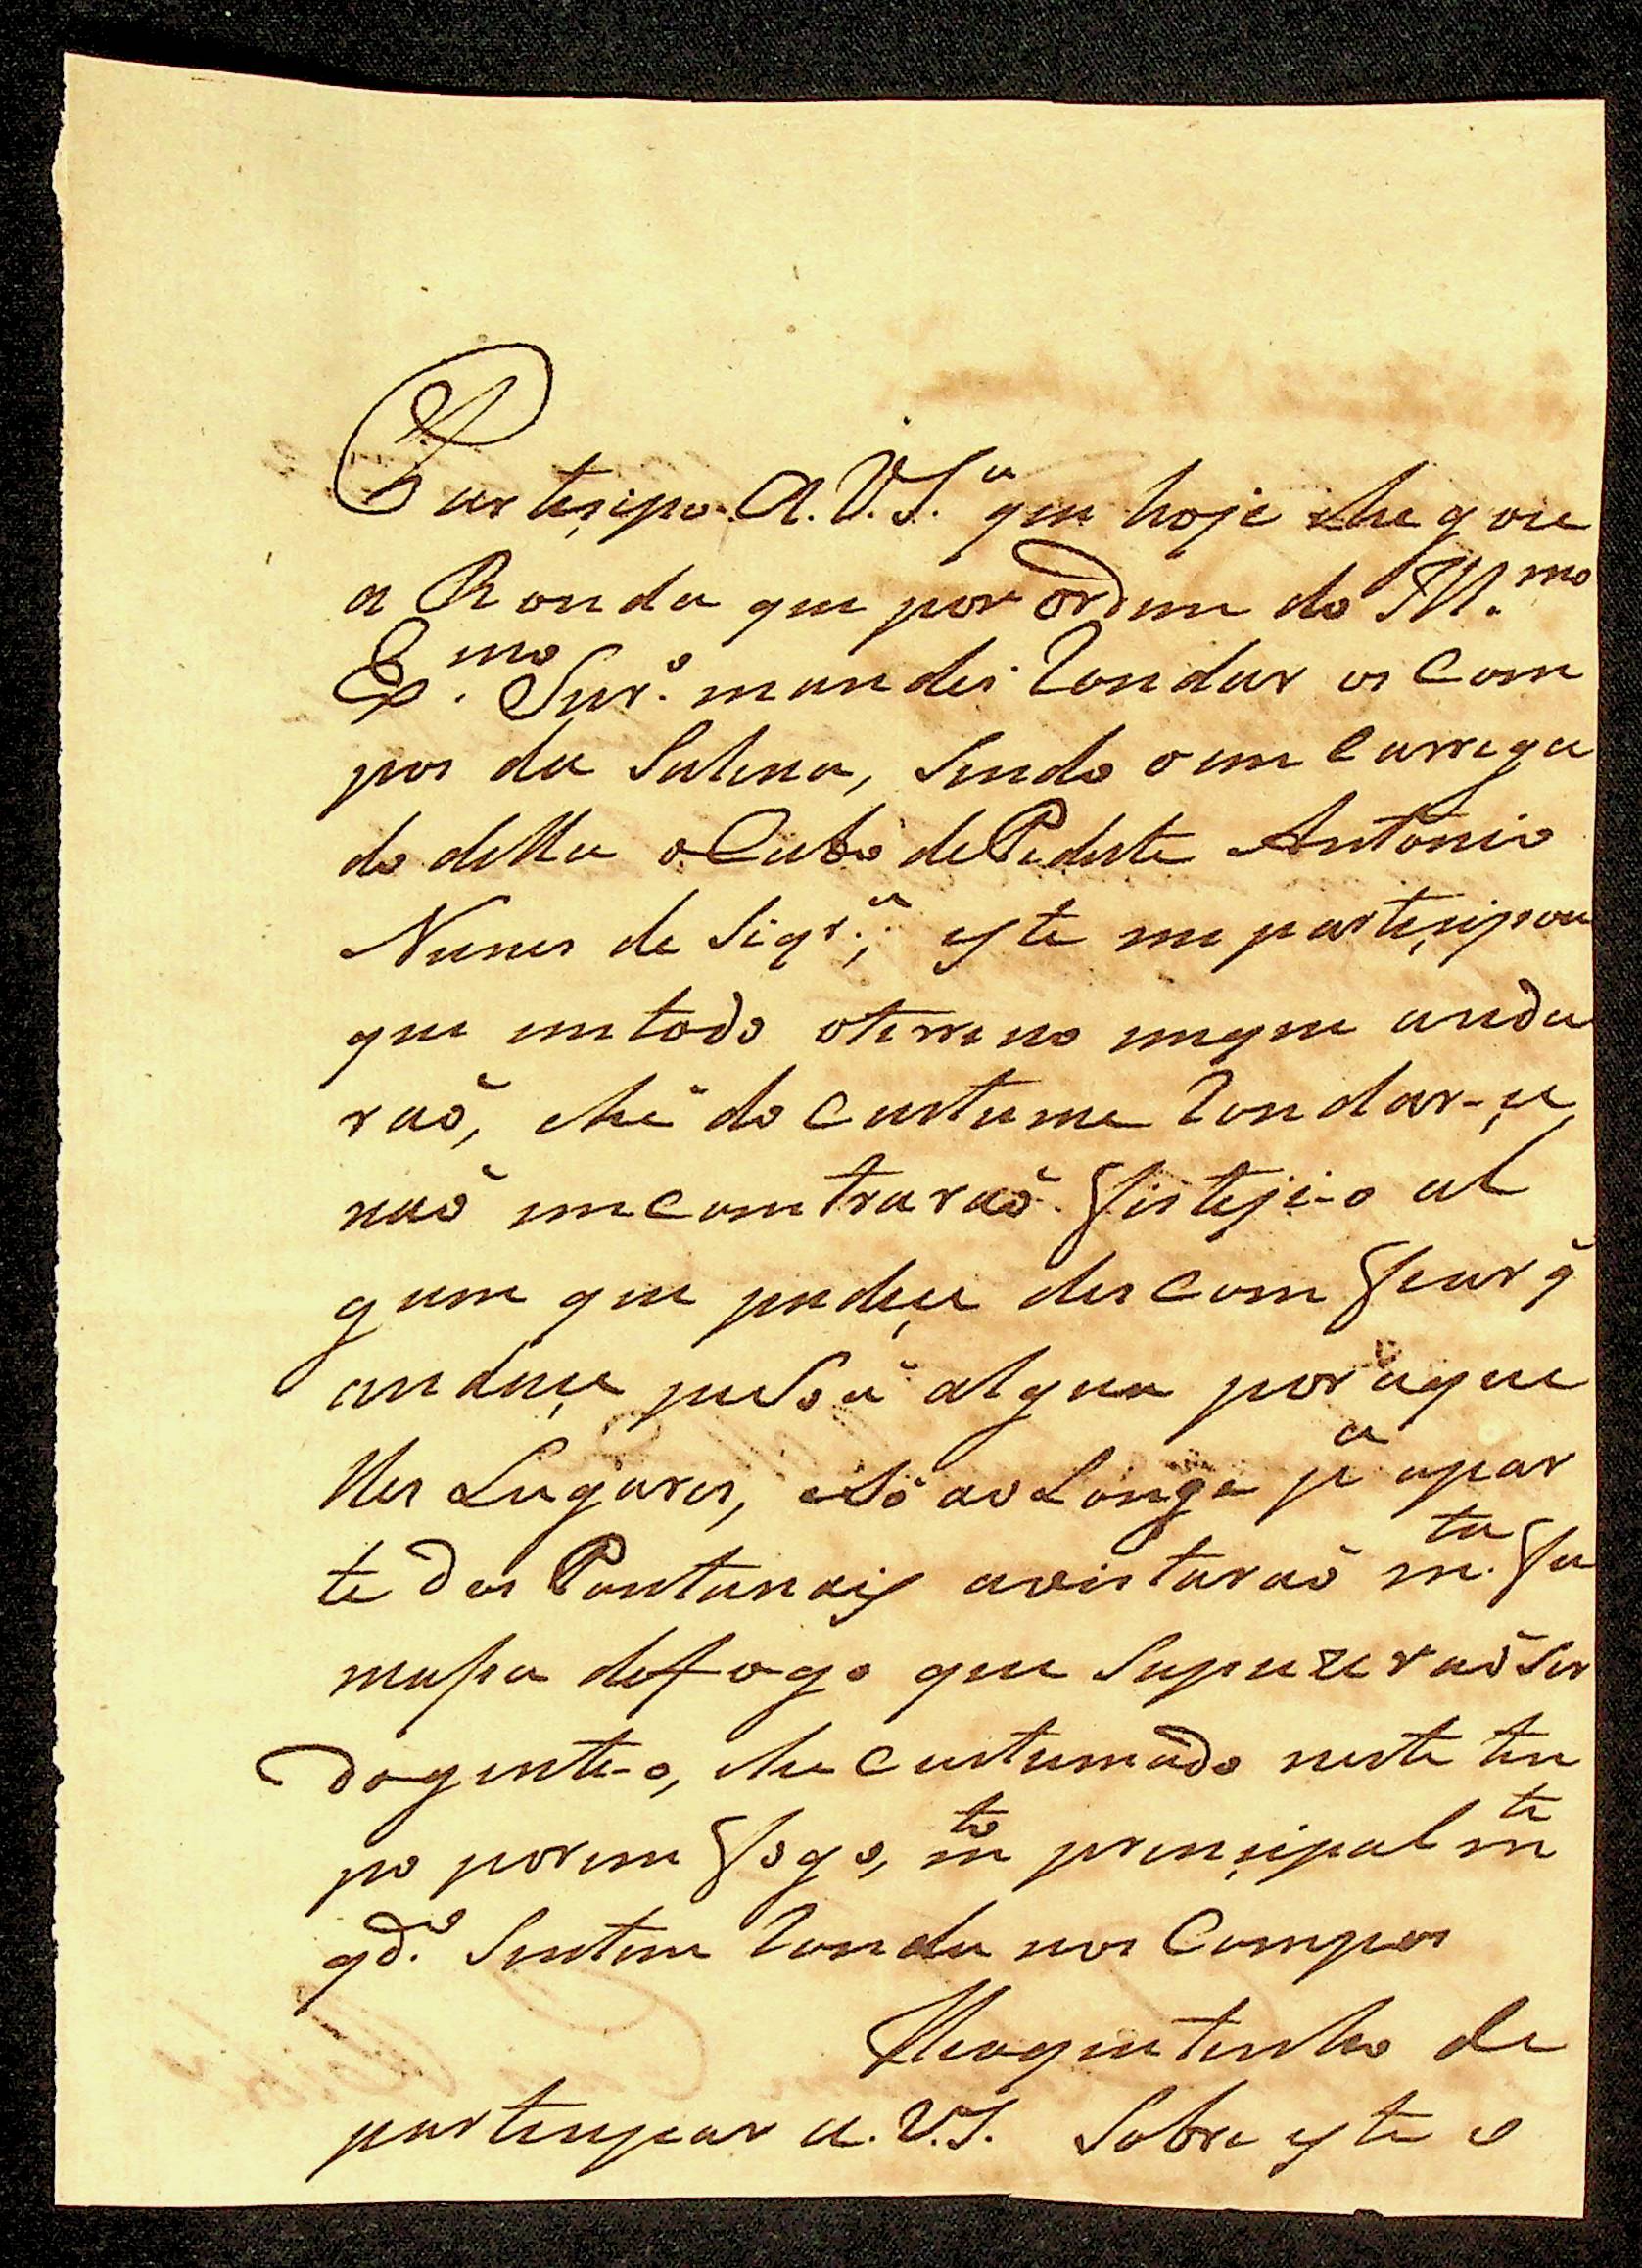 Partesipo A. V. S.ª que hoje chegou
a Ronda que por ordem do Ill.mo
Ex.mo Snr.º mandei Rondar os Cam
pos da Salina, Sendo o em Carrega
do della o Cabo de Pedeste Antonio
Nunes de Siqr.ª; este me partesipou
que em todo oterreno emque anda
raõ, ehé do Custume Rondar-çe,
naõ emComtraraõ Vistejio al
gum que pudeçe desComfiar q̃
andaçe peSoá algua por aque
lles Lugares, eSó ao Longe pª apar
te dos Pantanais avistaraõ m.ta fu
massa defogo que Supuzeraõ Ser
dogentio, he Custumado neste ten
po porem fogo, m.to prinçipalm.te
qd.º Sentem Ronda nos Campos
Heoquetenho de
partesipar a. V. S. Sobre este o